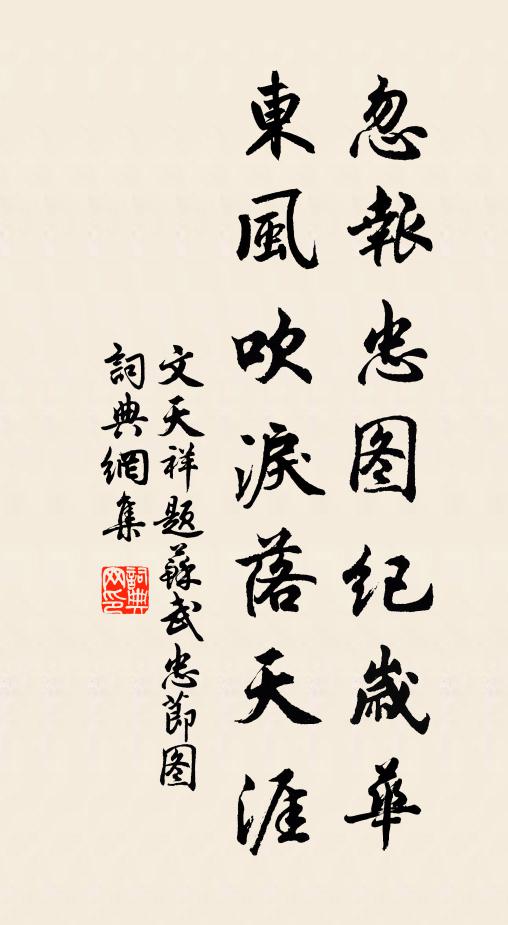 忽報忠图纪歲華
東風吹淚落天涯
文天祥题蘇武忠節图
詞典網集
詞典网印